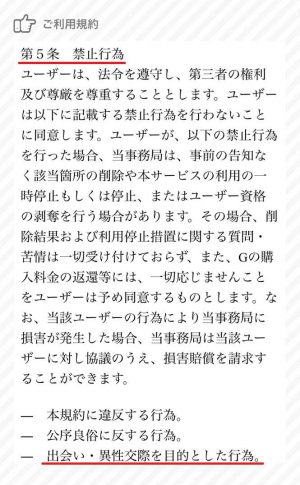 ご利用規約
第5条　禁止行為
ユーザーは、法令を遵守し、第三者の権利
及び尊厳を尊重することとします。ユーザー
は以下に記載する禁止行為を行わないこと
に同意します。ユーザーが、以下の禁止行為
を行った場合、当事務局は、事前の告知な
く該当箇所の削除や本サービスの利用の一
時停止もしくは停止、またはユーザー資格
の剥奪を行う場合があります。その場合、削
除結果および利用停止措置に関する質問・
苦情は一切受け付けておらず、また、Gの購
入料金の返還等には、一切応じませんこと
をユーザーは予め同意するものとします。な
お、当該ユーザーの行為により当事務局に
損害が発生した場合、当事務局は当該ユー
ザーに対し協議のうえ、損害賠償を請求す
ることができます。
―　本規約に違反する行為。
―　公序良俗に反する行為。
―　出会い・異性交際を目的とした行為。